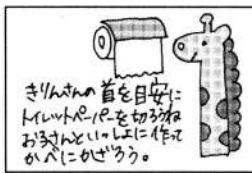 きりんさんの首を目安に
トイレットペーパーを切ろうね
お子さんといっしょに作って
かべにかざろう。